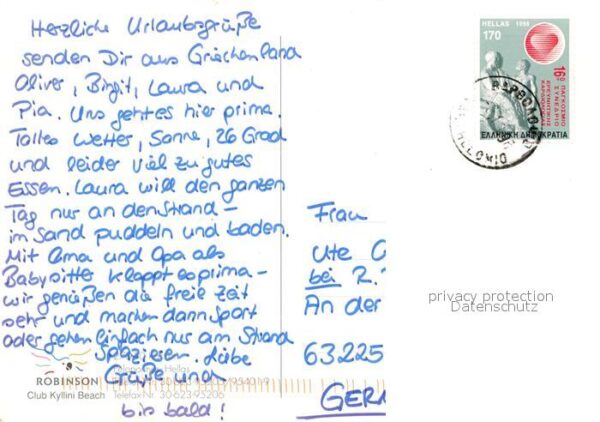 Herzliche Urlaubsgrüße
senden Dir aus Griechenland
Oliver, Birgit, Laura und
Pia. Uns geht es hier prima.
Tolles Wetter, Sonne, 26 Grad
und leider viel zu gutes
Essen. Laura will den ganzen
Tag nur an den Strand –
im Sand puddeln und baden.
Mit Oma und Opa als
Babysitter klappt es prima –
wir genießen die freie Zeit
sehr und machen dann Sport
oder gehen einfach nur am Strand
spazieren. Liebe
Grüße und
bis bald!
ROBINSON
Club Kyllini Beach
Hellas
Telefax-Nr. 30-623-95206
HELLAS 1996
170
16º ΠΑΓΚΟΣΜΙΟ
ΣΥΝΕΔΡΙΟ
ΕΡΕΥΝΗΤΙΚΗΣ
ΚΑΡΔΙΟΛΟΓΙΑΣ
ΕΛΛΗΝΙΚΗ ΔΗΜΟΚΡΑΤΙΑ
Frau
Ute
bei R.
An der
63225
GER
privacy protection
Datenschutz